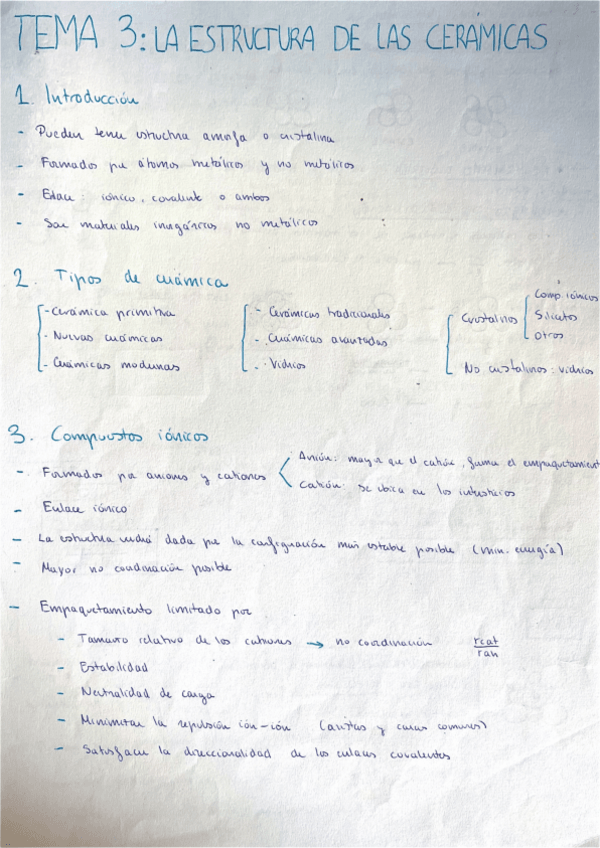 TEMA 3: LA ESTRUCTURA DE LAS CERÁMICAS
1. Introducción
- Pueden tener estructura amorfa o cristalina
- Formados por átomos metálicos y no metálicos
- Enlace: iónico, covalente o ambos
- Son materiales inorgánicos no metálicos
2. Tipos de cerámica
- Cerámica primitiva
- Nuevas cerámicas
- Cerámicas modernas
- Cerámicas tradicionales
- Cerámicas avanzadas
- Vidrios
Cristalinos
Comp. iónicos
Silicatos
Otros
No cristalinos: vidrios
3. Compuestos iónicos
- Formados por aniones y cationes
Anión: mayor que el catión, forma el empaquetamient
Catión: se ubica en los intersticios
- Enlace iónico
- La estructura vendrá dada por la configuración más estable posible (min. energía)
- Mayor no coordinación posible
- Empaquetamiento limitado por
- Tamaño relativo de los cationes → no coordinación rcat
ran
- Estabilidad
- Neutralidad de carga
- Minimizar la repulsión ión-ión (aristas y caras comunes)
- Satisfacer la direccionalidad de los enlaces covalentes